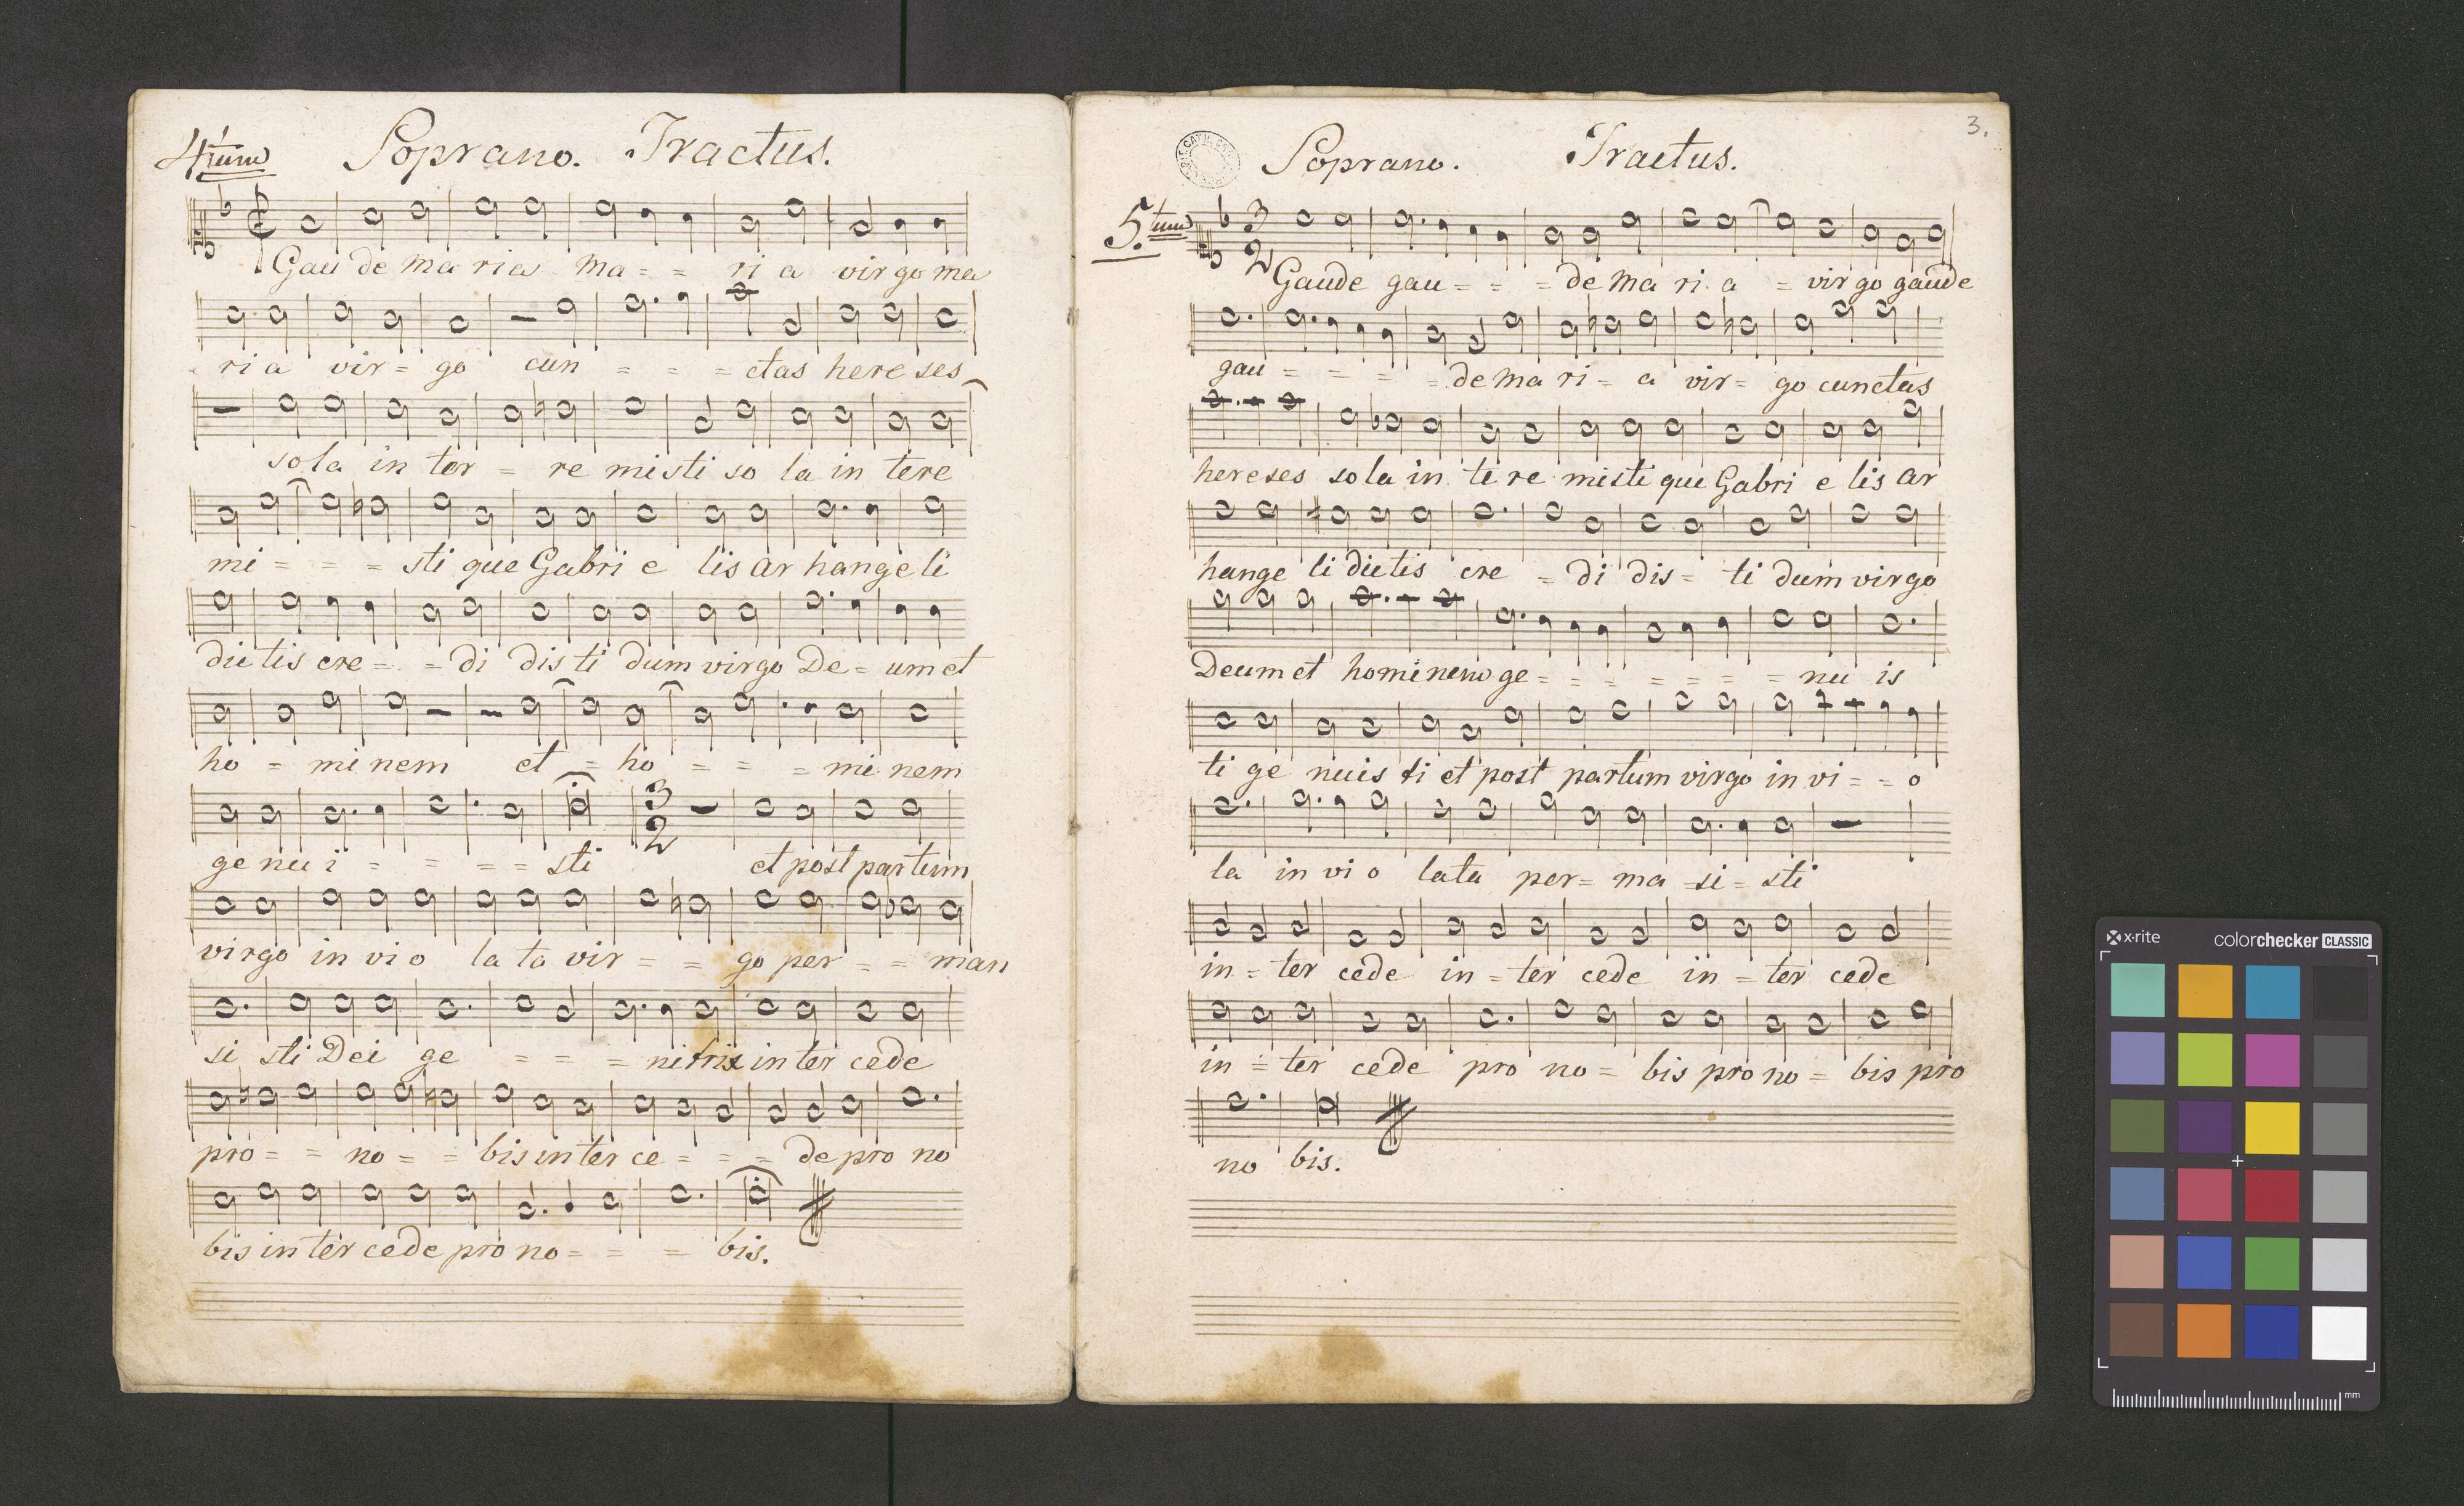 4tum Soprano. Tractus.
Gau de Ma ria Ma = = ri a vir go ma
ri a vir = go cun = = = ctas here ses
sola in ter = re misti so la in te re
mi = = = sti que Gabri e lis ar hange li
dic tis cre = = di dis ti dum virgo De = um et
ho = mi nem et = ho = = = mi nem
ge nu i = = = = sti et post partum
3
2
virgo in vi o la ta vir = = go per = = man
si sti Dei ge = = = nitrix in ter cede
pro = = no = = bis in ter ce = = = de pro no
bis in ter cede pro no = = = bis.
3.
Soprano. Tractus.
5.tum
3
2
Gaude gau = = = de Ma ri a = vir go gaude
gau = = = = de ma ri = a vir = go cunctas
here ses so la in te re misti que Gabri e lis ar
hange li dictis cre = di dis = ti dum virgo
Deum et hominem ge = = = = = = = nu is
ti ge nuis ti et post partum virgo in vi = = o
la in vi o lata per = ma = si = sti
in = ter cede in = ter cede in = ter cede
in = ter cede pro no = bis pro no = bis pro
no bis.
x·rite colorchecker CLASSIC
mm